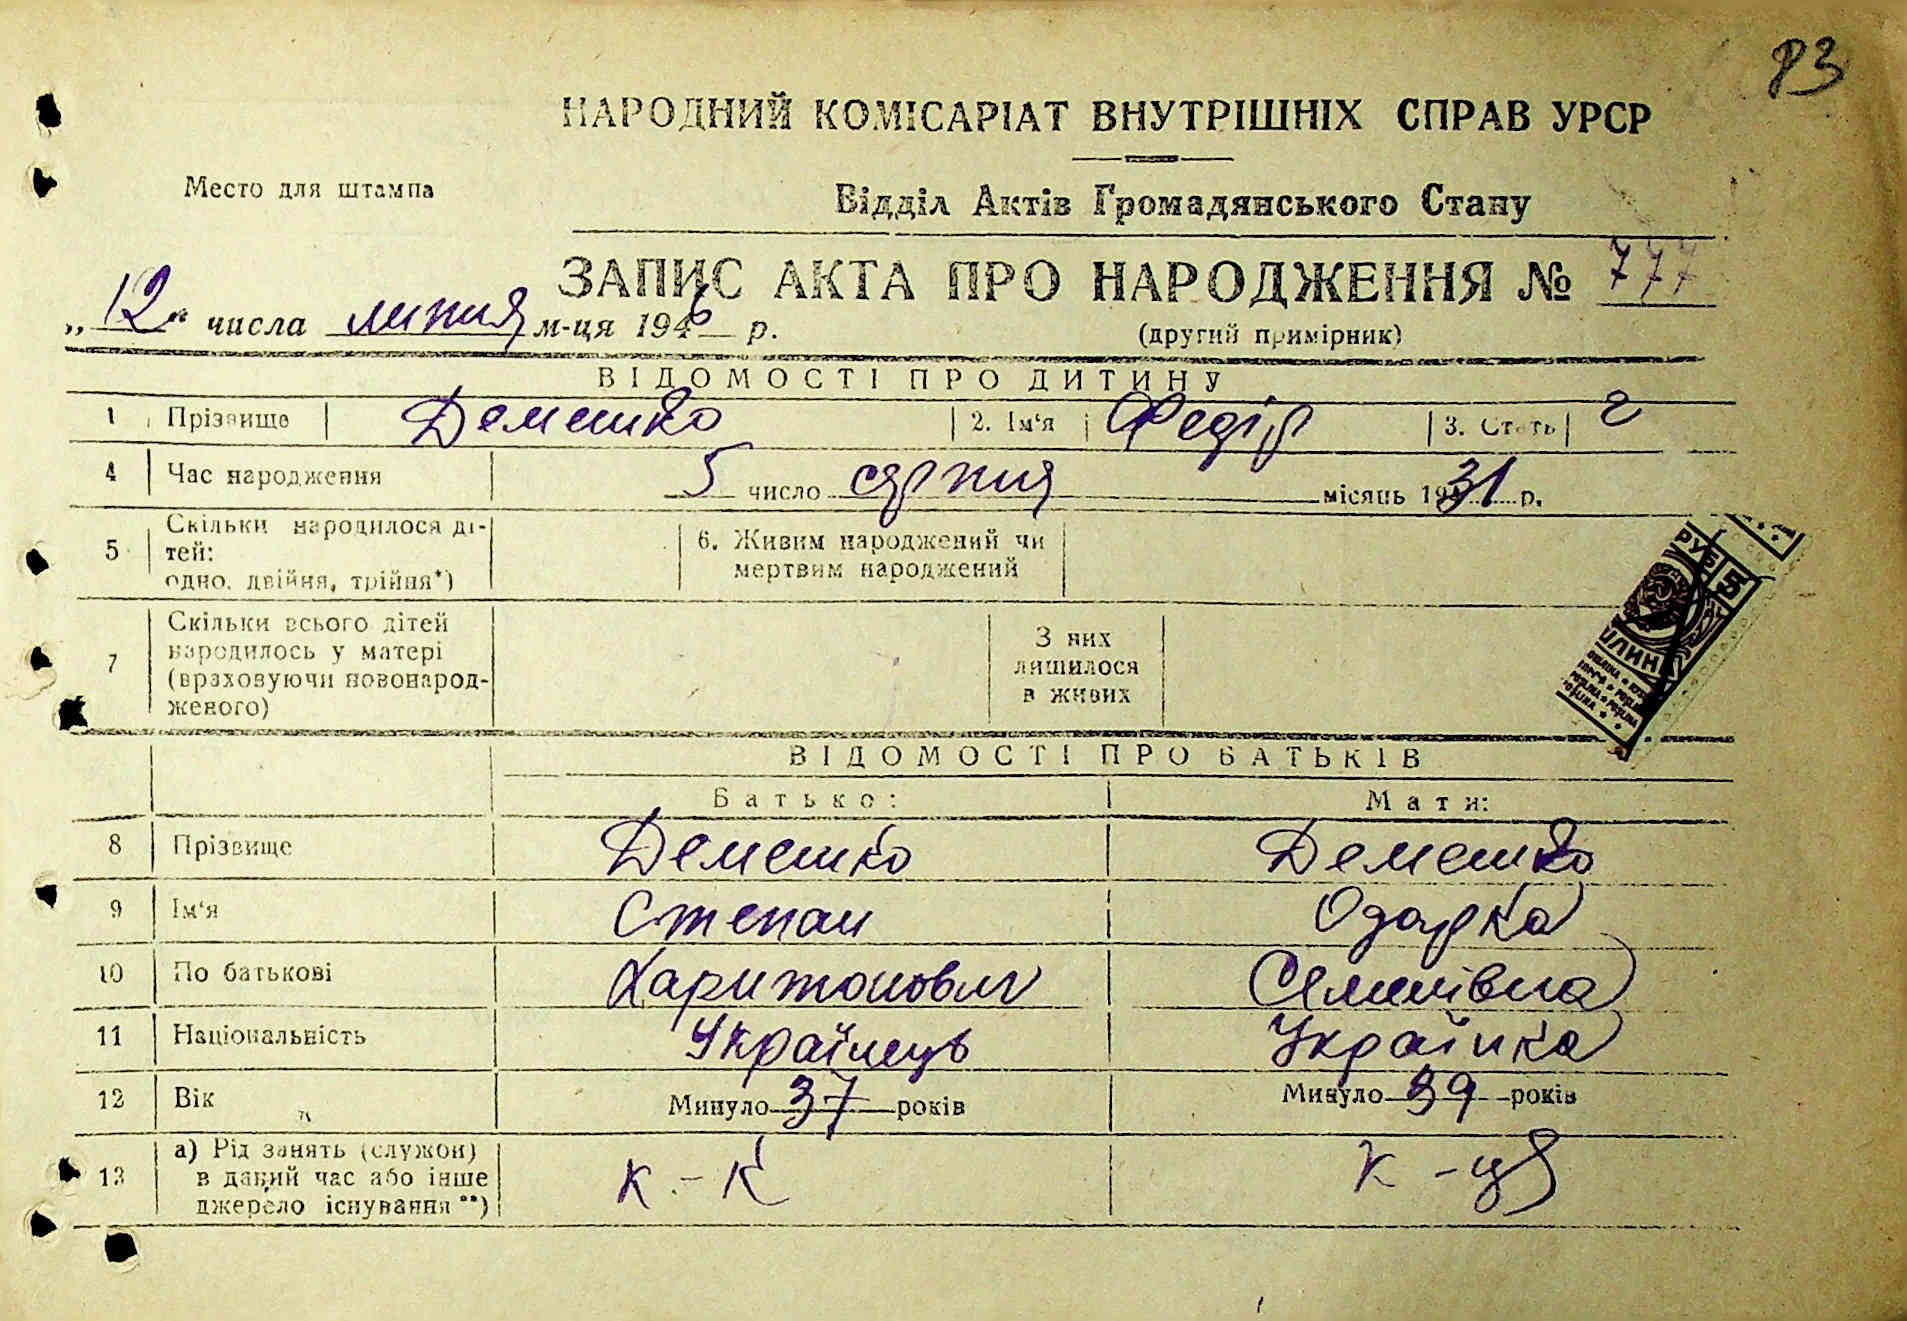 83
НАРОДНИЙ КОМІСАРІАТ ВНУТРІШНІХ СПРАВ УРСР
Место для штампа
Відділ Актів Громадянського Стану
ЗАПИС АКТА ПРО НАРОДЖЕННЯ № 777
„12“ числа липня м-ця 1946 р.
(другий примірник)
ВІДОМОСТІ ПРО ДИТИНУ
1 Прізвище Демешко 2. Ім‘я Федір 3. Стать г
4 Час народження 5 число серпня місяць 1931 р.
5 Скільки народилося ді-
тей:
одно, двійня, трійня*)
6. Живим народжений чи
мертвим народжений
7 Скільки всього дітей
народилось у матері
(враховуючи новонарод-
женого)
З них
лишилося
в живих
РУБ 5
ВІДОМОСТІ ПРО БАТЬКІВ
Батько: Мати:
8 Прізвище Демешко Демешко
9 Ім‘я Степан Одарка
10 По батькові Харитонович Семенівна
11 Національність Українець Українка
12 Вік Минуло 37 років Минуло 39 років
13 а) Рід занять (служби)
в даний час або інше
джерело існування **)
к.-к к-ця